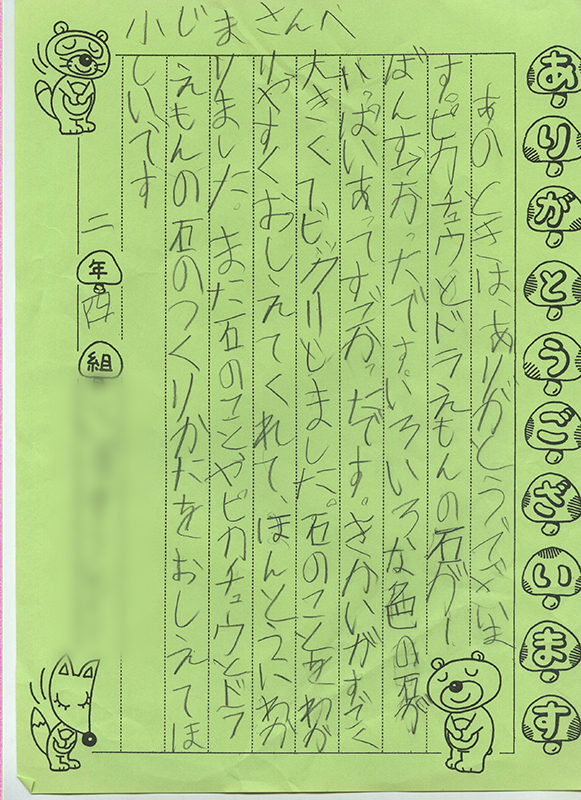 ありがとうございます
小じまさんへ
あのときは、ありがとうございま
す。ピカチュウとドラえもんの石が一
ばんすごかったです。いろいろな色の石が
いっぱいあってすごかったです。きかいがすごく
大きくてビックリしました。石のことをわか
りやすくおしえてくれて、ほんとうにわか
りました。また石のことやピカチュウとドラ
えもんの石のつくりかたをおしえてほ
しいです
二年四組